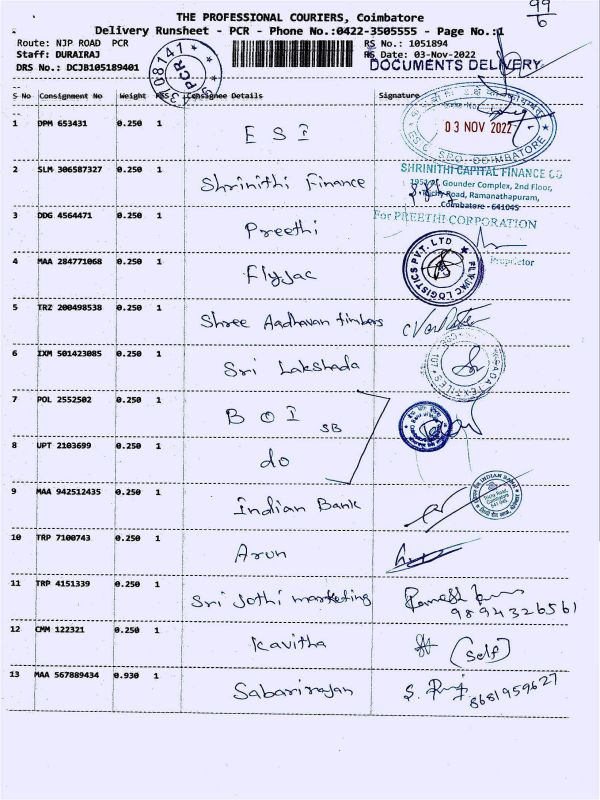 99
6
THE PROFESSIONAL COURIERS, Coimbatore
Delivery Runsheet - PCR - Phone No.:0422-3505555 - Page No.:1
Route: NJP ROAD PCR
RS No.: 1051894
Staff: DURAIRAJ
RS Date: 03-Nov-2022
DRS No.: DCJB105189401
DOCUMENTS DELIVERY
3108141 PCR
S No Consignment No Weight PCS Consignee Details Signature
1 DPM 653431 0.250 1 E S I
03 NOV 2022
COIMBATORE
2 SLM 306587327 0.250 1 Shrinithi Finance
SHRINITHI CAPITAL FINANCE CO
Gounder Complex, 2nd Floor,
Trichy Road, Ramanathapuram,
Coimbatore - 641045
3 DDG 4564471 0.250 1 Preethi
For PREETHI CORPORATION
Proprietor
4 MAA 284771068 0.250 1 Flyjac
FLYJAC LOGISTICS PVT. LTD
5 TRZ 200498538 0.250 1 Shree Aadhavan timbers
6 IXM 501423085 0.250 1 Sri Lakshada
7 POL 2552502 0.250 1 B O I SB
8 UPT 2103699 0.250 1 do
9 MAA 942512435 0.250 1 Indian Bank
INDIAN BANK
10 TRP 7100743 0.250 1 Arun
11 TRP 4151339 0.250 1 Sri Jothi marketing
9894326561
12 CMM 122321 0.250 1 Kavitha (Self)
13 MAA 567889434 0.930 1 Sabarirajan
8681959627